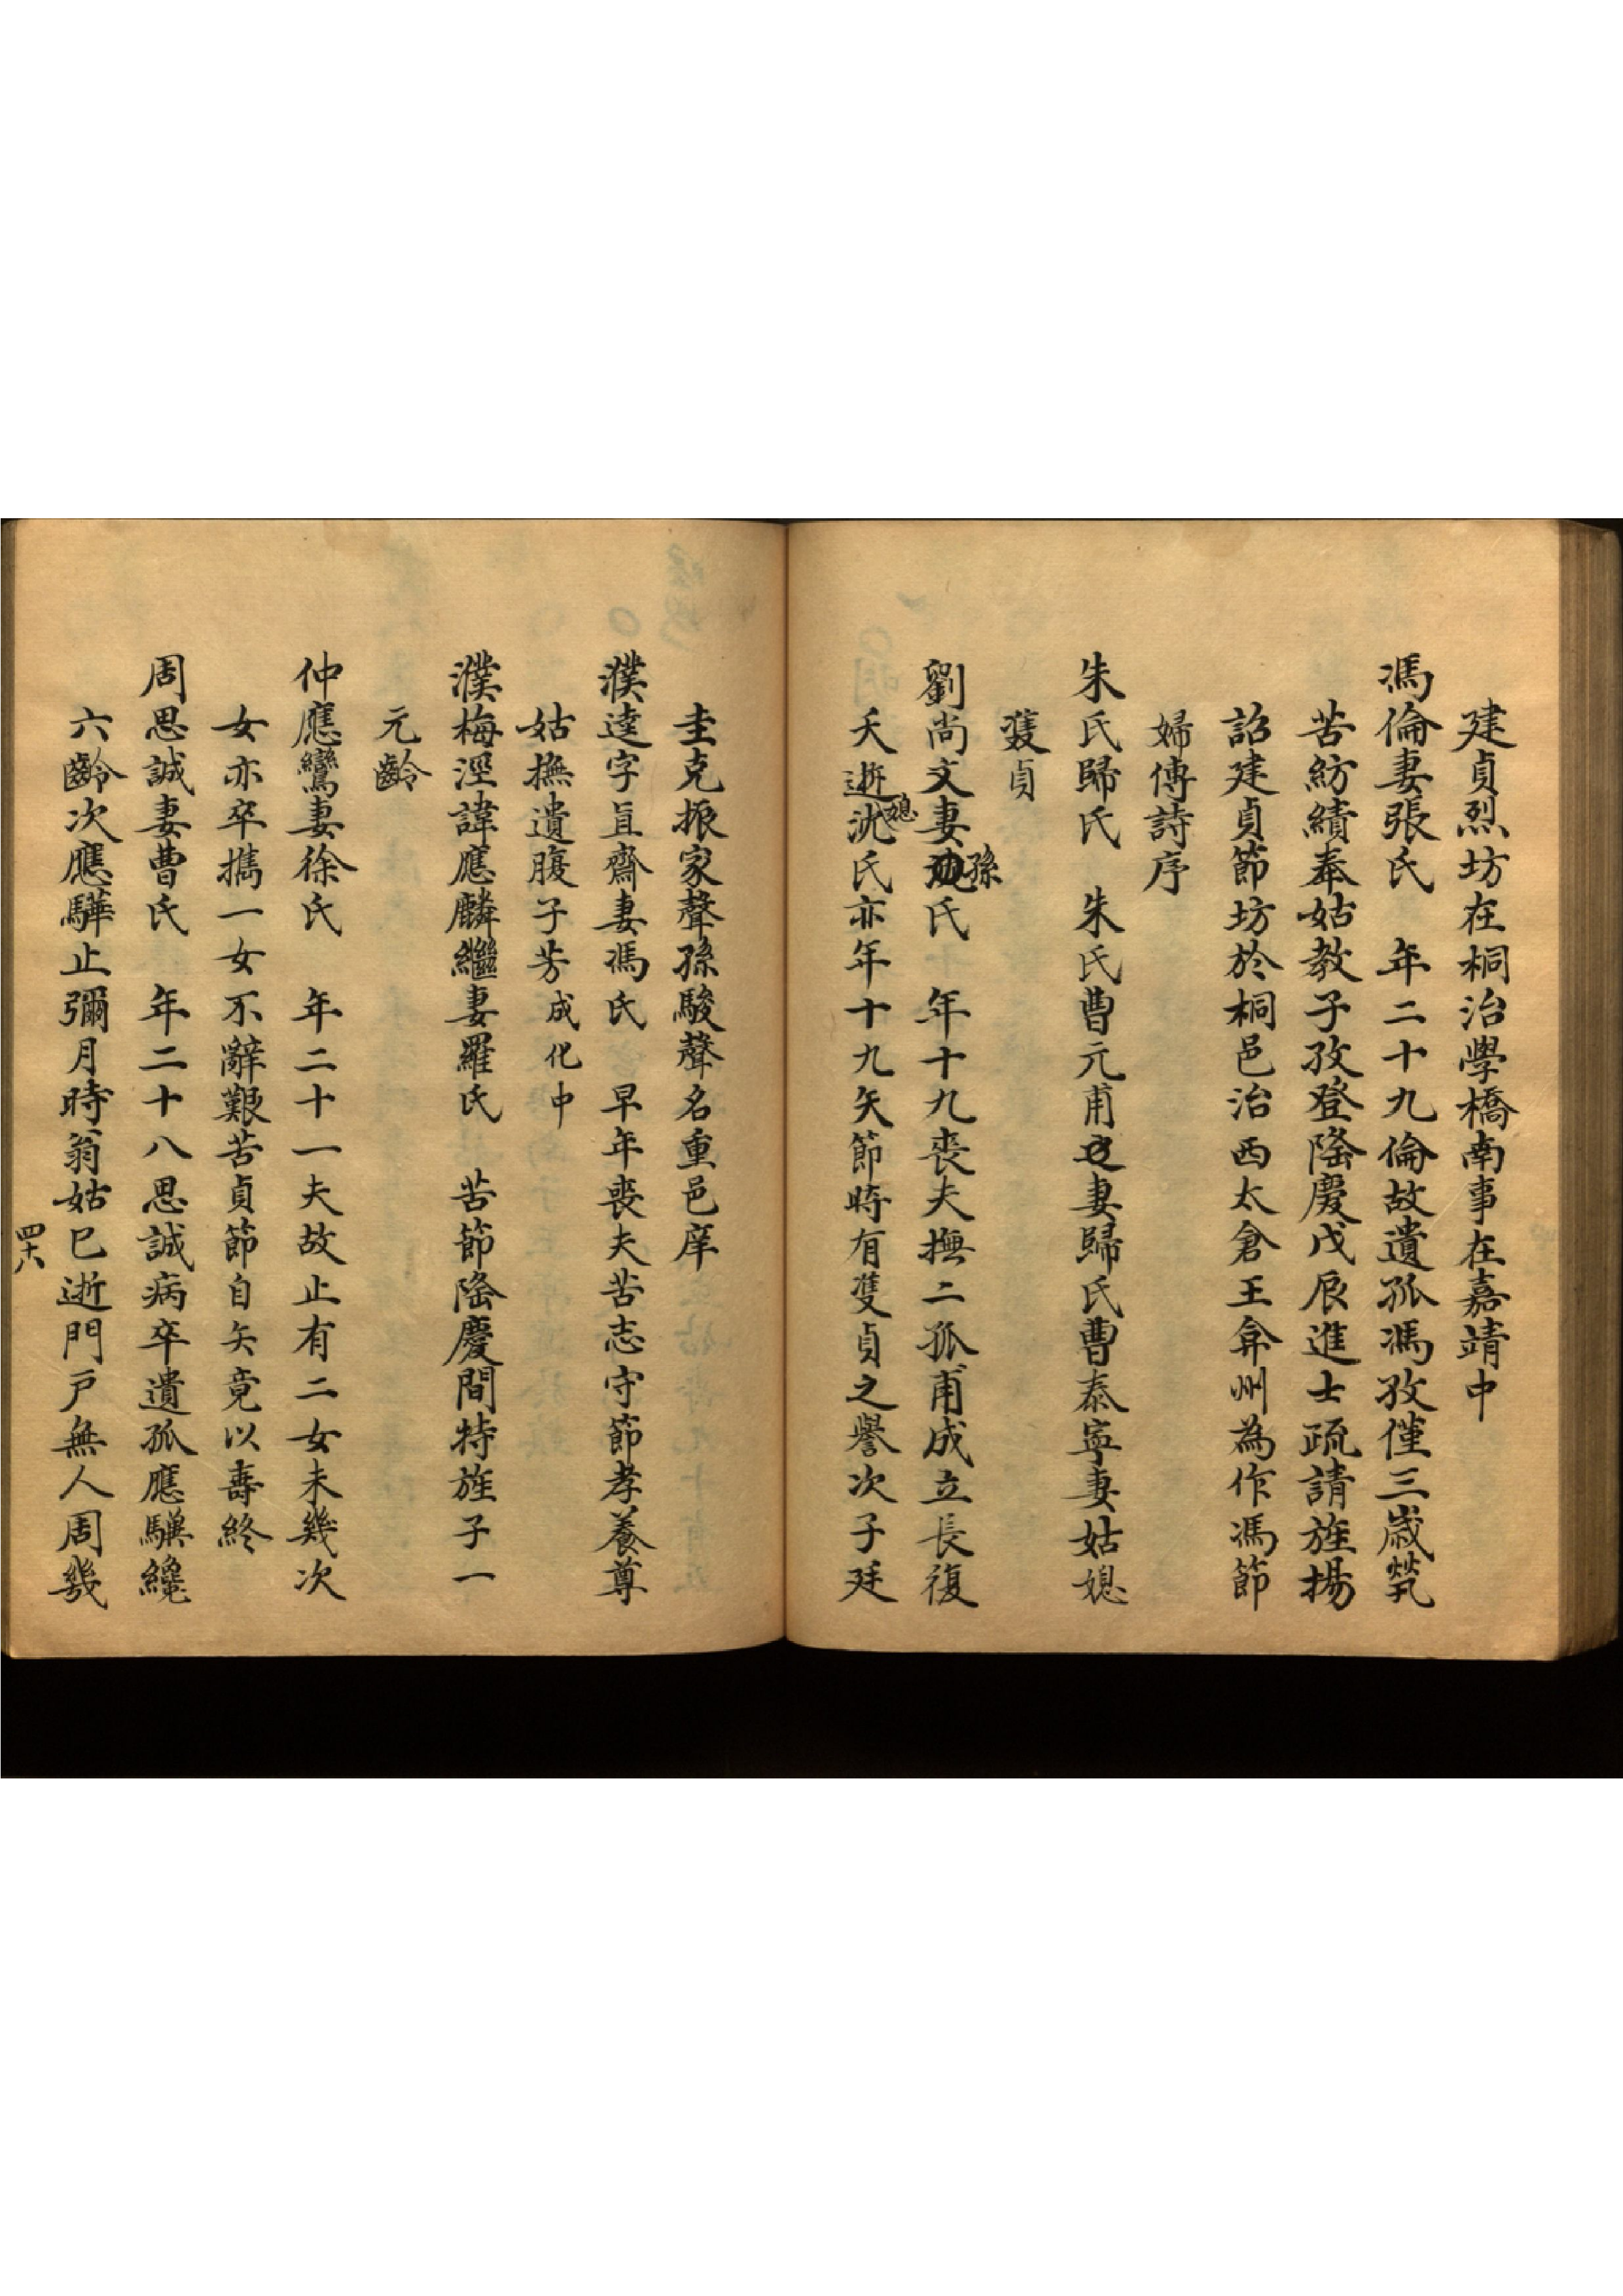 建貞烈坊在桐治學橋南事在嘉靖中
馮倫妻張氏　年二十九倫故遺孤馮孜僅三歲煢
苦紡績奉姑教子孜登隆慶戊辰進士疏請旌揚
詔建貞節坊於桐邑治西太倉王弇州為作馮節
婦傳詩序
朱氏歸氏　朱氏曹元甫妻歸氏曹泰寧妻姑媳
雙貞
劉尚文妻孫氏　年十九喪夫撫二孤甫成立長復
夭逝媳沈氏亦年十九矢節時有雙貞之譽次子廷
圭克振家聲孫駿聲名重邑庠
濮達字直齋妻馮氏　早年喪夫苦志守節孝養尊
姑撫遺腹子芳成化中
濮梅涇諱應麟繼妻羅氏　苦節隆慶間特旌子一
元齡
仲應鸞妻徐氏　年二十一夫故止有二女未幾次
女亦卒攜一女不辭艱苦貞節自矢竟以壽終
周思誠妻曹氏　年二十八思誠病卒遺孤應騏纔
六齡次應驊止彌月時翁姑已逝門戶無人周幾
四十八